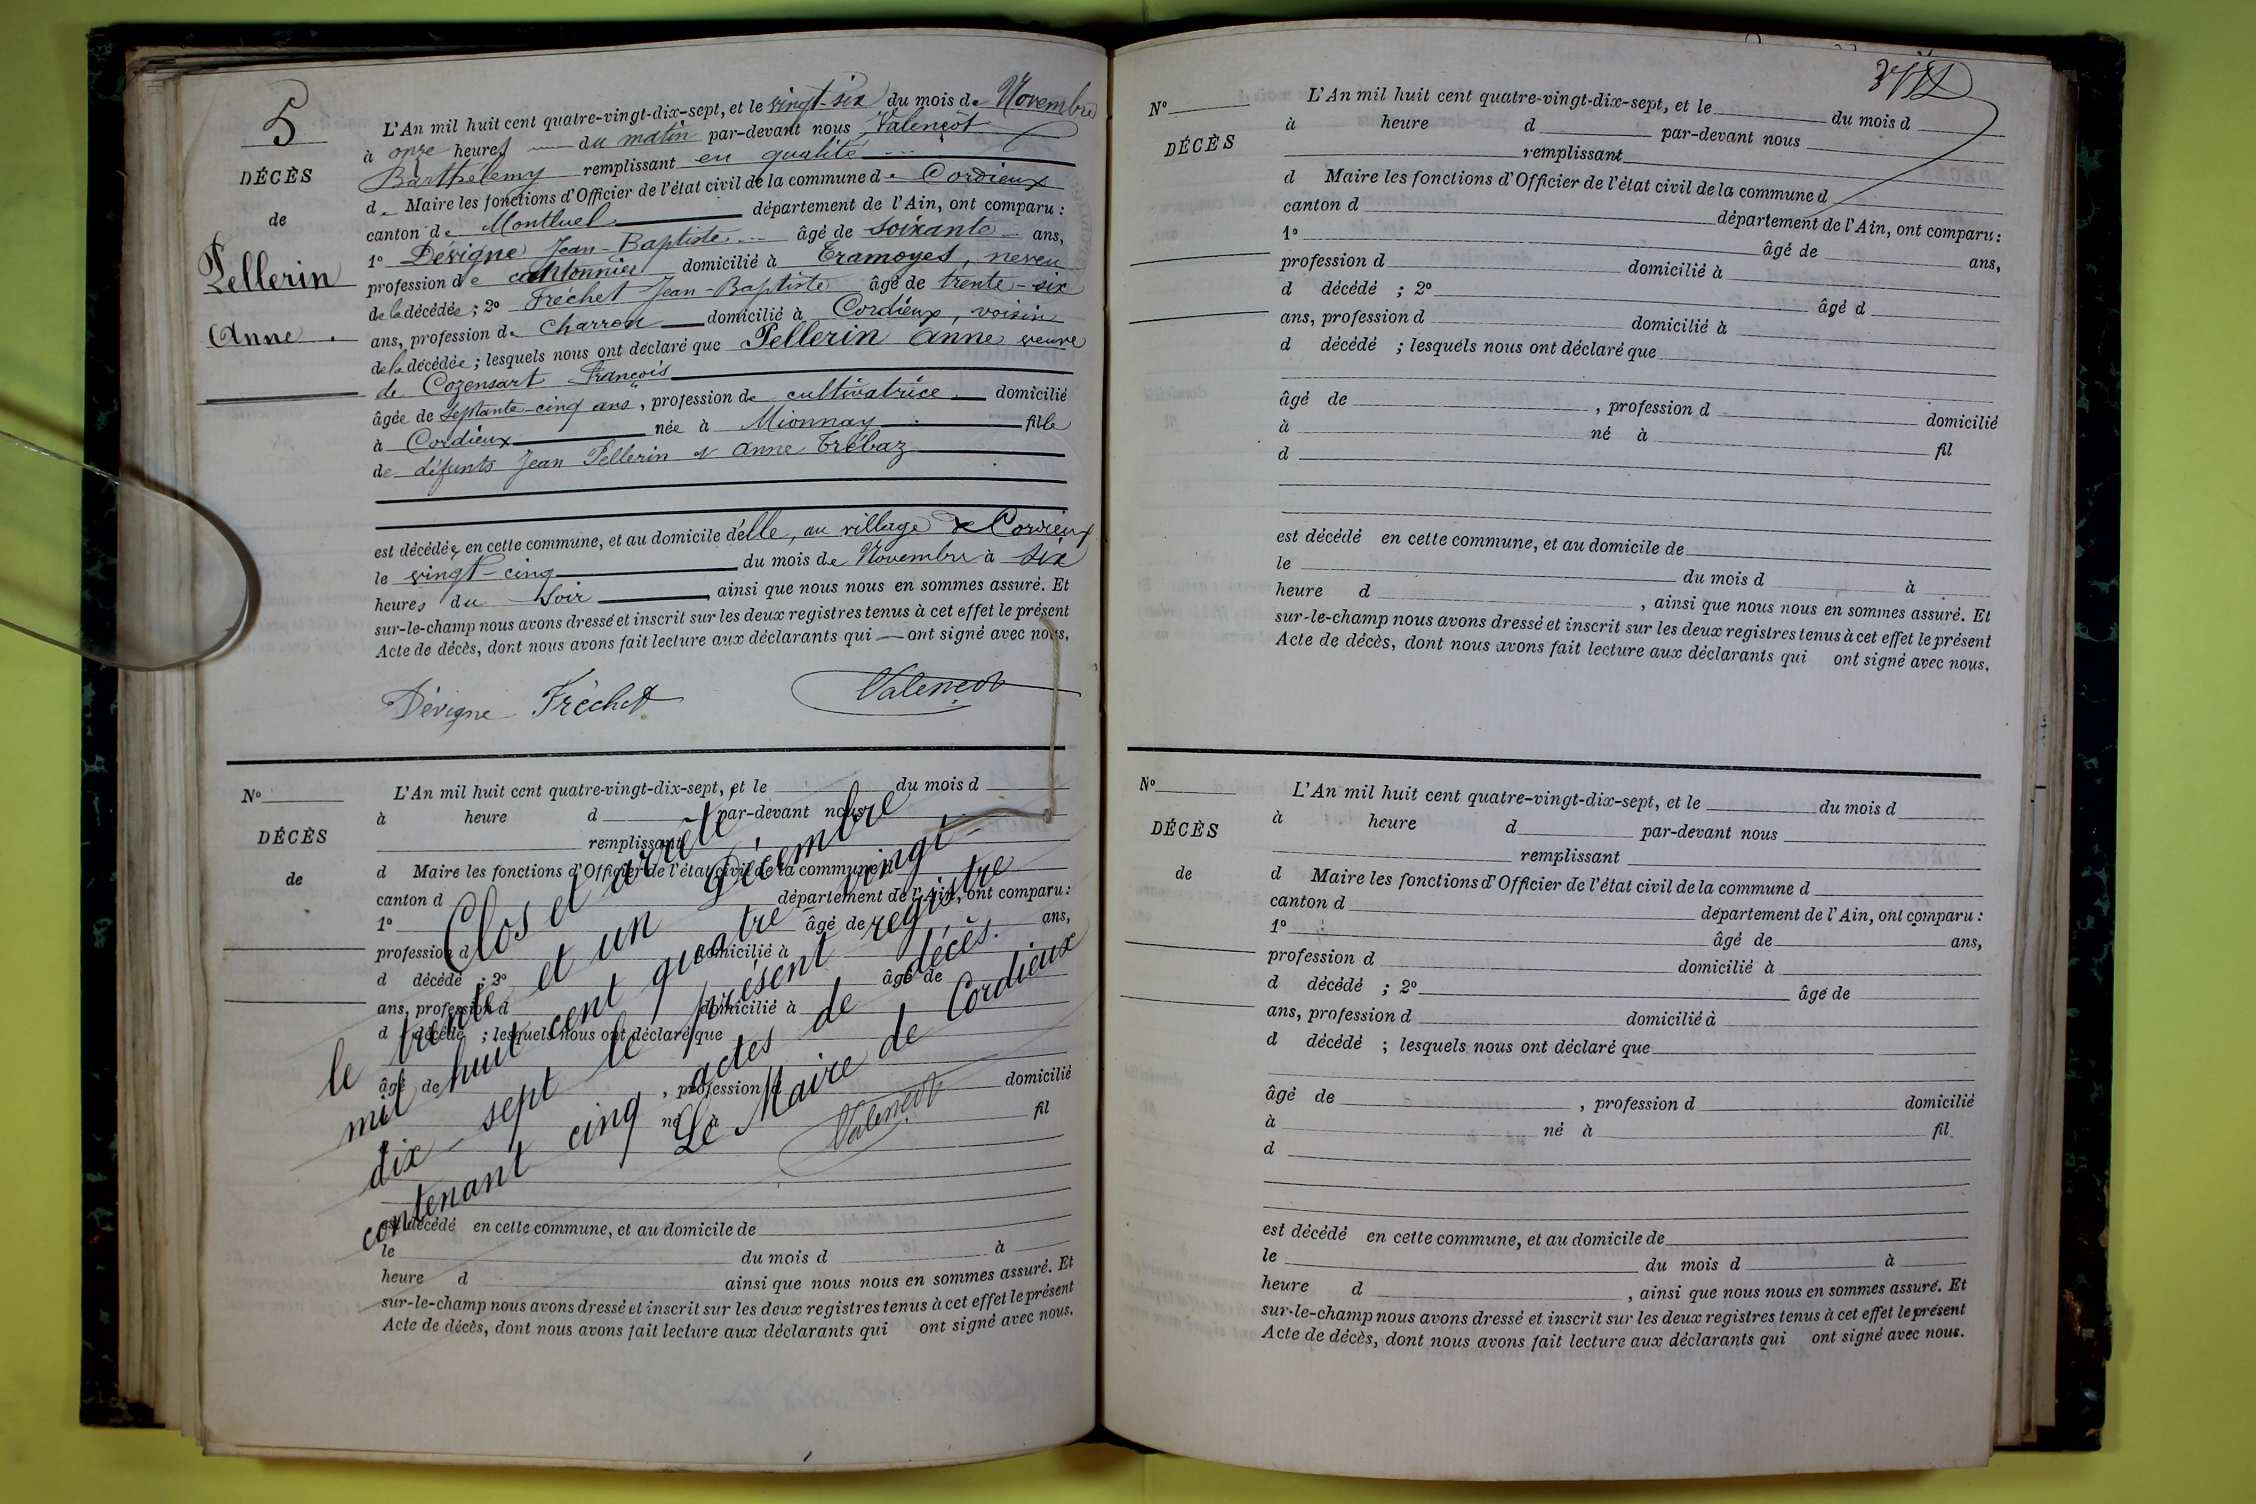 5
DÉCÈS
de
Pellerin
Anne
L'An mil huit cent quatre-vingt-dix-sept, et le vingt-six du mois de Novembre
à onze heures du matin par-devant nous Valençot
Barthélemy remplissant en qualité
de Maire les fonctions d'Officier de l'état civil de la commune de Cordieux
canton de Montluel département de l'Ain, ont comparu :
1º Dévigne Jean-Baptiste âgé de soixante ans,
profession de cantonnier domicilié à Tramoyes, neveu
de la décédée ; 2º Fréchet Jean-Baptiste âgé de trente-six
ans, profession de charron domicilié à Cordieux, voisin
de la décédée ; lesquels nous ont déclaré que Pellerin Anne veuve
de Cozensart François
âgée de septante-cinq ans, profession de cultivatrice domicilié
à Cordieux née à Mionnay fille
de défunts Jean Pellerin et Anne Trébaz
est décédée en cette commune, et au domicile d'elle, au village de Cordieux
le vingt-cinq du mois de Novembre à six
heures du soir, ainsi que nous nous en sommes assuré. Et
sur-le-champ nous avons dressé et inscrit sur les deux registres tenus à cet effet le présent
Acte de décès, dont nous avons fait lecture aux déclarants qui ont signé avec nous.
Dévigne Fréchet Valençot
Nº
DÉCÈS
de
L'An mil huit cent quatre-vingt-dix-sept, et le du mois d
à heure d par-devant nous
remplissant
d Maire les fonctions d'Officier de l'état civil de la commune d
canton d département de l'Ain, ont comparu :
1º âgé de ans,
profession d domicilié à
d décédé ; 2º âgé de
ans, profession d domicilié à
d décédé ; lesquels nous ont déclaré que
âgé de , profession d domicilié
à né à fil
est décédé en cette commune, et au domicile de
le du mois d à
heure d ainsi que nous nous en sommes assuré. Et
sur-le-champ nous avons dressé et inscrit sur les deux registres tenus à cet effet le présent
Acte de décès, dont nous avons fait lecture aux déclarants qui ont signé avec nous.
Clos et arrêté
le trente et un Décembre
mil huit cent quatre vingt
dix sept le présent registre
contenant cinq actes de décès.
Le Maire de Cordieux
Valençot
Nº
DÉCÈS
L'An mil huit cent quatre-vingt-dix-sept, et le du mois d
à heure d par-devant nous
remplissant
d Maire les fonctions d'Officier de l'état civil de la commune d
canton d département de l'Ain, ont comparu :
1º âgé de ans,
profession d domicilié à
d décédé ; 2º âgé d
ans, profession d domicilié à
d décédé ; lesquels nous ont déclaré que
âgé de , profession d domicilié
à né à fil
d
est décédé en cette commune, et au domicile de
le du mois d à
heure d , ainsi que nous nous en sommes assuré. Et
sur-le-champ nous avons dressé et inscrit sur les deux registres tenus à cet effet le présent
Acte de décès, dont nous avons fait lecture aux déclarants qui ont signé avec nous.
Nº
DÉCÈS
de
L'An mil huit cent quatre-vingt-dix-sept, et le du mois d
à heure d par-devant nous
remplissant
d Maire les fonctions d'Officier de l'état civil de la commune d
canton d département de l'Ain, ont comparu :
1º âgé de ans,
profession d domicilié à
d décédé ; 2º âgé de
ans, profession d domicilié à
d décédé ; lesquels nous ont déclaré que
âgé de , profession d domicilié
à né à fil
d
est décédé en cette commune, et au domicile de
le du mois d à
heure d , ainsi que nous nous en sommes assuré. Et
sur-le-champ nous avons dressé et inscrit sur les deux registres tenus à cet effet le présent
Acte de décès, dont nous avons fait lecture aux déclarants qui ont signé avec nous.